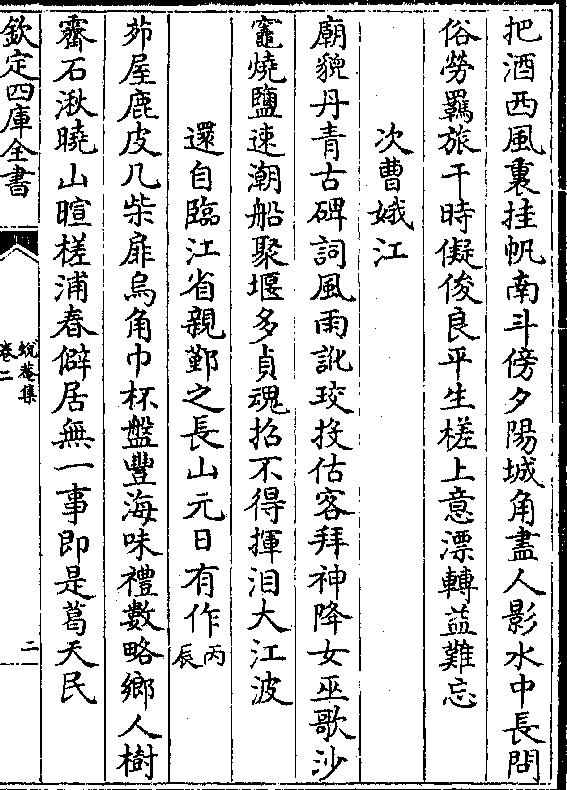 把酒西風裏挂帆南斗傍夕陽城角盡人影水中長問
俗勞羈旅干時儗俊良平生槎上意漂轉益難忘
次曹娥江
廟貌丹青古碑詞風雨訛珓投估客拜神降女巫歌沙
竈燒鹽速潮船聚堰多貞魂招不得揮泪大江波
還自臨江省親鄞之長山元日有作丙辰
茆屋鹿皮几柴扉烏角巾杯盤豐海味禮數略鄉人樹
齊石湫曉山暄槎浦春僻居無一事即是葛天民
欽定四庫全書
卷二
二